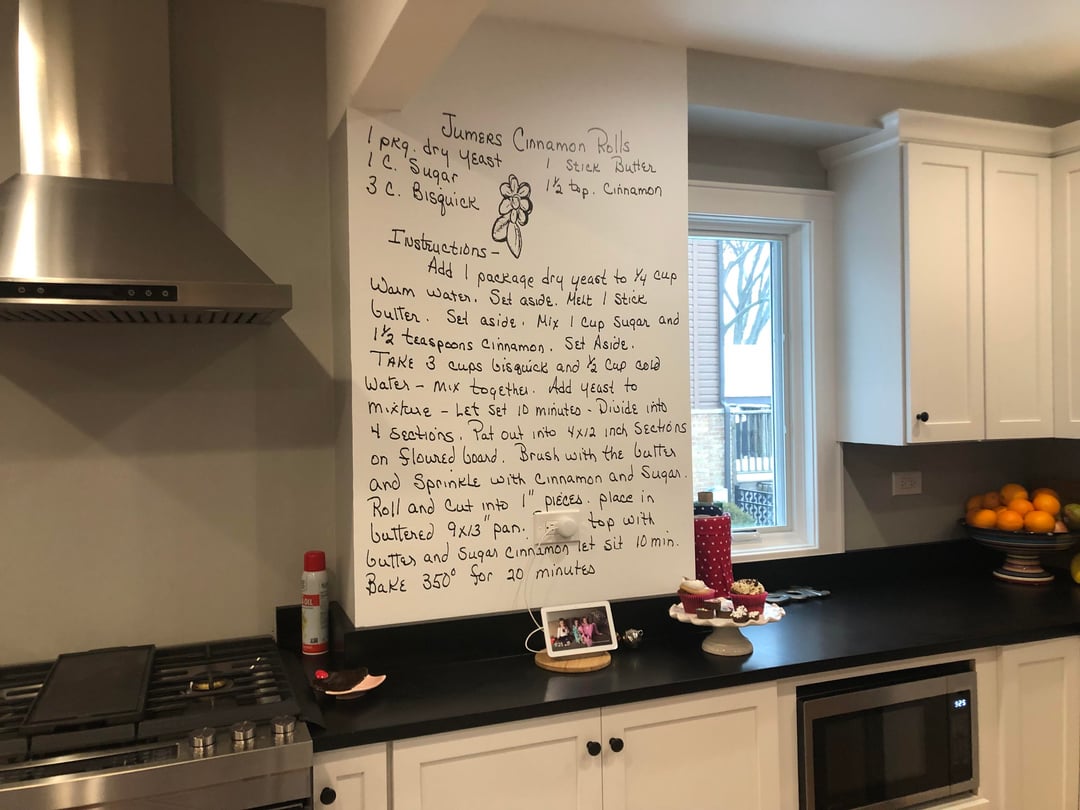 Jumers Cinnamon Rolls
1 pkg. dry yeast
1 C. Sugar
3 C. Bisquick
1 Stick Butter
1½ tsp. Cinnamon
Instructions -
Add 1 package dry yeast to ¼ cup
Warm water. Set aside. Melt 1 Stick
butter. Set aside. Mix 1 Cup Sugar and
1½ teaspoons cinnamon. Set Aside.
TAKE 3 cups bisquick and ½ cup cold
Water - mix together. Add yeast to
mixture - Let set 10 minutes - Divide into
4 sections. Pat out into 4x12 inch sections
on floured board. Brush with the butter
and Sprinkle with cinnamon and Sugar.
Roll and cut into 1" pieces. place in
buttered 9x13" pan. top with
butter and Sugar cinnamon let sit 10 min.
BAKE 350° for 20 minutes